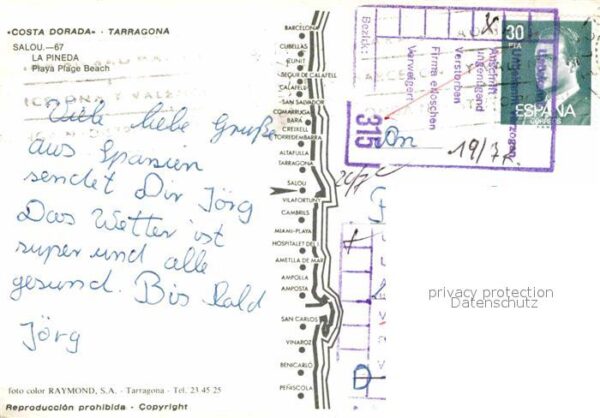 «COSTA DORADA» · TARRAGONA
SALOU.—67
LA PINEDA
Playa Plage Beach
Viele liebe Grüße
aus Spanien
sendet Dir Jörg
Das Wetter ist
super und alle
gesund. Bis bald
Jörg
foto color RAYMOND, S.A. - Tarragona - Tel. 23 45 25
Reproducción prohibida - Copyright
BARCELONA
CUBELLAS
CUNIT
SEGUR DE CALAFELL
CALAFELL
SAN SALVADOR
COMARRUGA
BARA
CREIXELL
TORREDEMBARRA
ALTAFULLA
TARRAGONA
SALOU
VILAFORTUNY
CAMBRILS
MIAMI-PLAYA
HOSPITALET DEL I.
AMETLLA DE MAR
AMPOLLA
AMPOSTA
SAN CARLOS
VINAROZ
BENICARLO
PEÑISCOLA
Bezirk:
315
Verzogen
Firma erloschen
Verstorben
ungenügend
Anschrift
An
19/7
30
PTA
ESPAÑA
CORREOS
privacy protection
Datenschutz